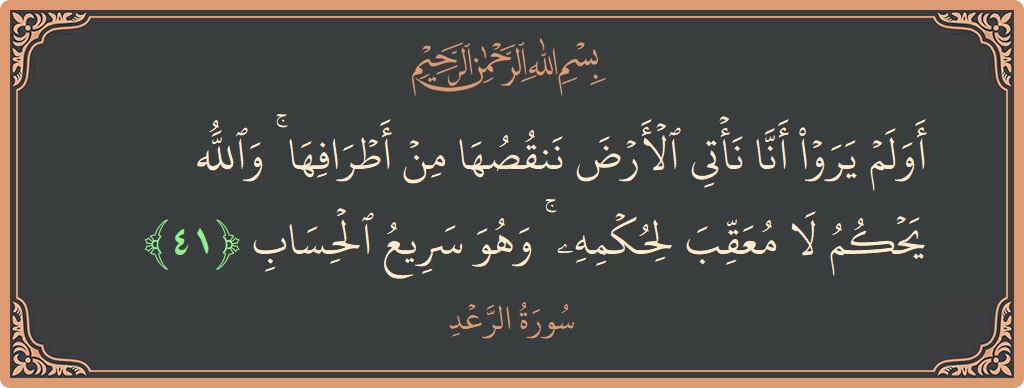 بِسْمِ اللَّهِ الرَّحْمَٰنِ الرَّحِيمِ
أَوَلَمْ يَرَوْا۟ أَنَّا نَأْتِى ٱلْأَرْضَ نَنقُصُهَا مِنْ أَطْرَافِهَا ۚ وَٱللَّهُ
يَحْكُمُ لَا مُعَقِّبَ لِحُكْمِهِۦ ۚ وَهُوَ سَرِيعُ ٱلْحِسَابِ ﴿٤١﴾
سُورَةُ الرَّعْدِ